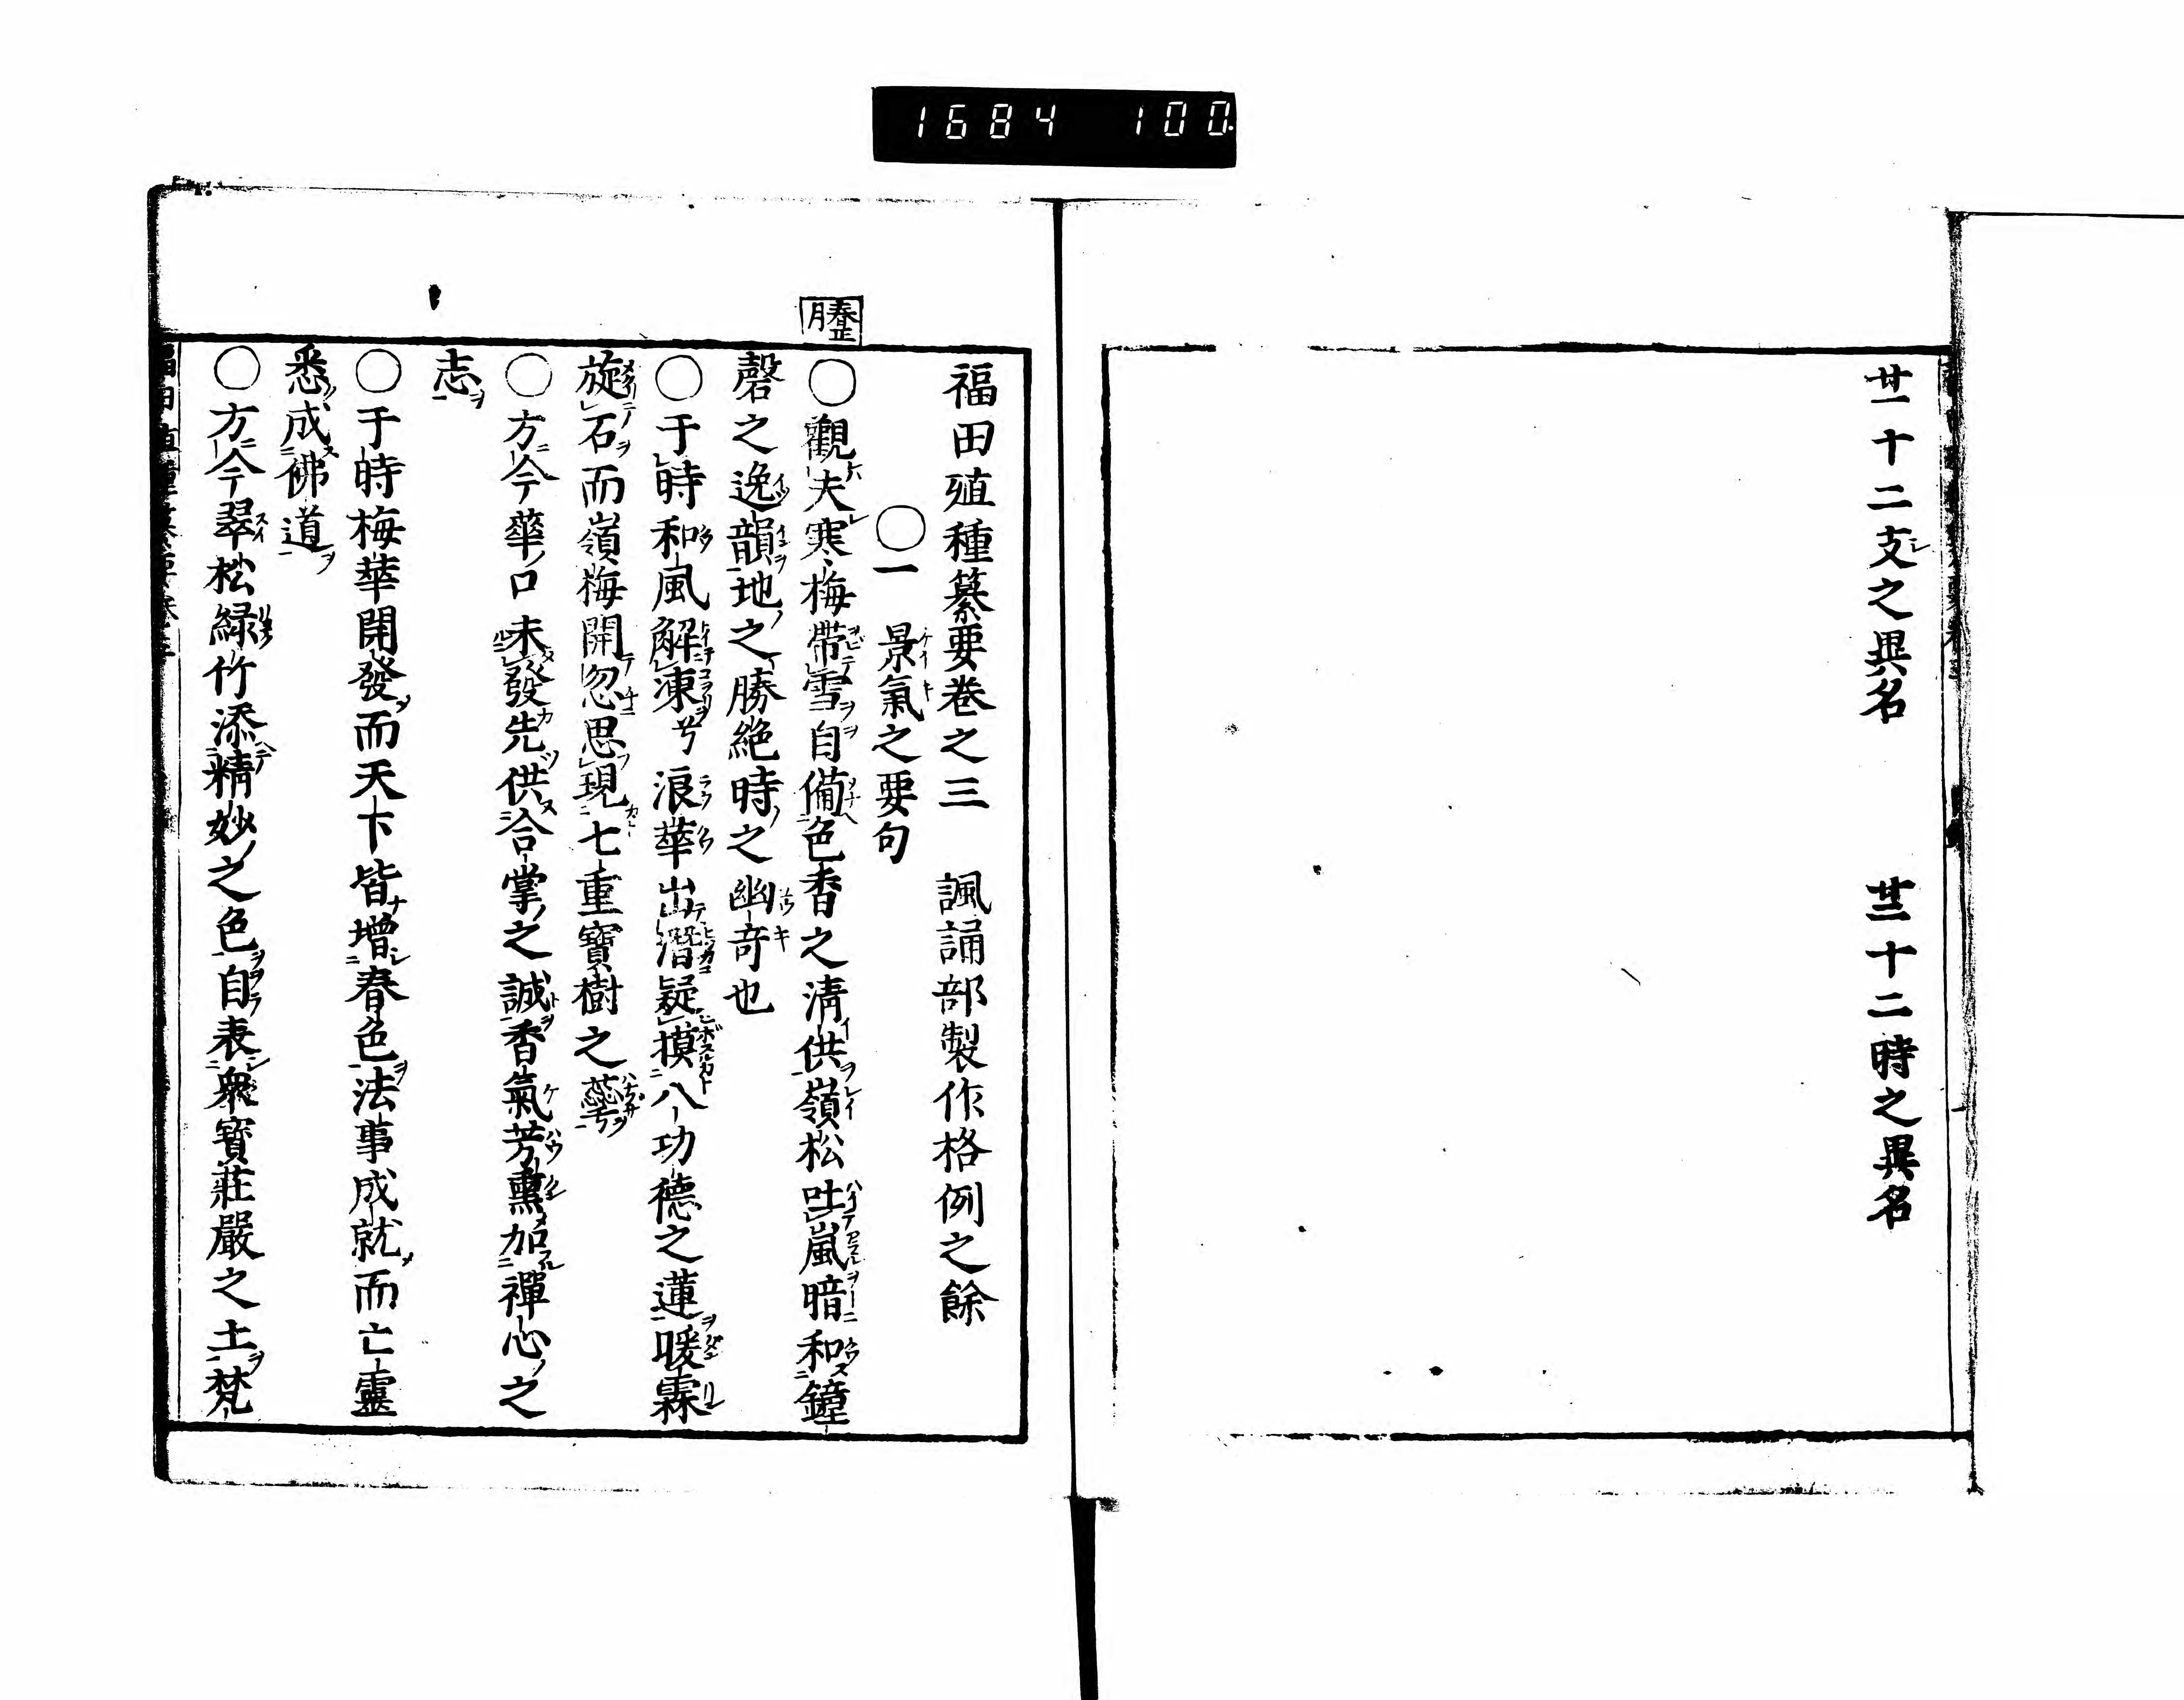 1684 100
廿一十二支之異名　廿二十二時之異名
福田殖種纂要卷之三　諷誦部製作格例之餘
〇一　景氣之要句
春正月
〇觀夫寒梅帶雪自備色香之淸供嶺松吐嵐暗和鐘
磬之逸韻地之勝絶時之幽奇也
〇于時和風解凍兮浪華出潛疑摸八功德之蓮暖霖
旋石而嶺梅開忽思現七重寶樹之蘂
〇方今華口未發先供合掌之誠香氣芳熏加禪心之
志
〇于時梅華開發而天下皆增春色法事成就而亡靈
悉成佛道
〇方今翠松緑竹添精妙之色自表衆寶莊嚴之土梵